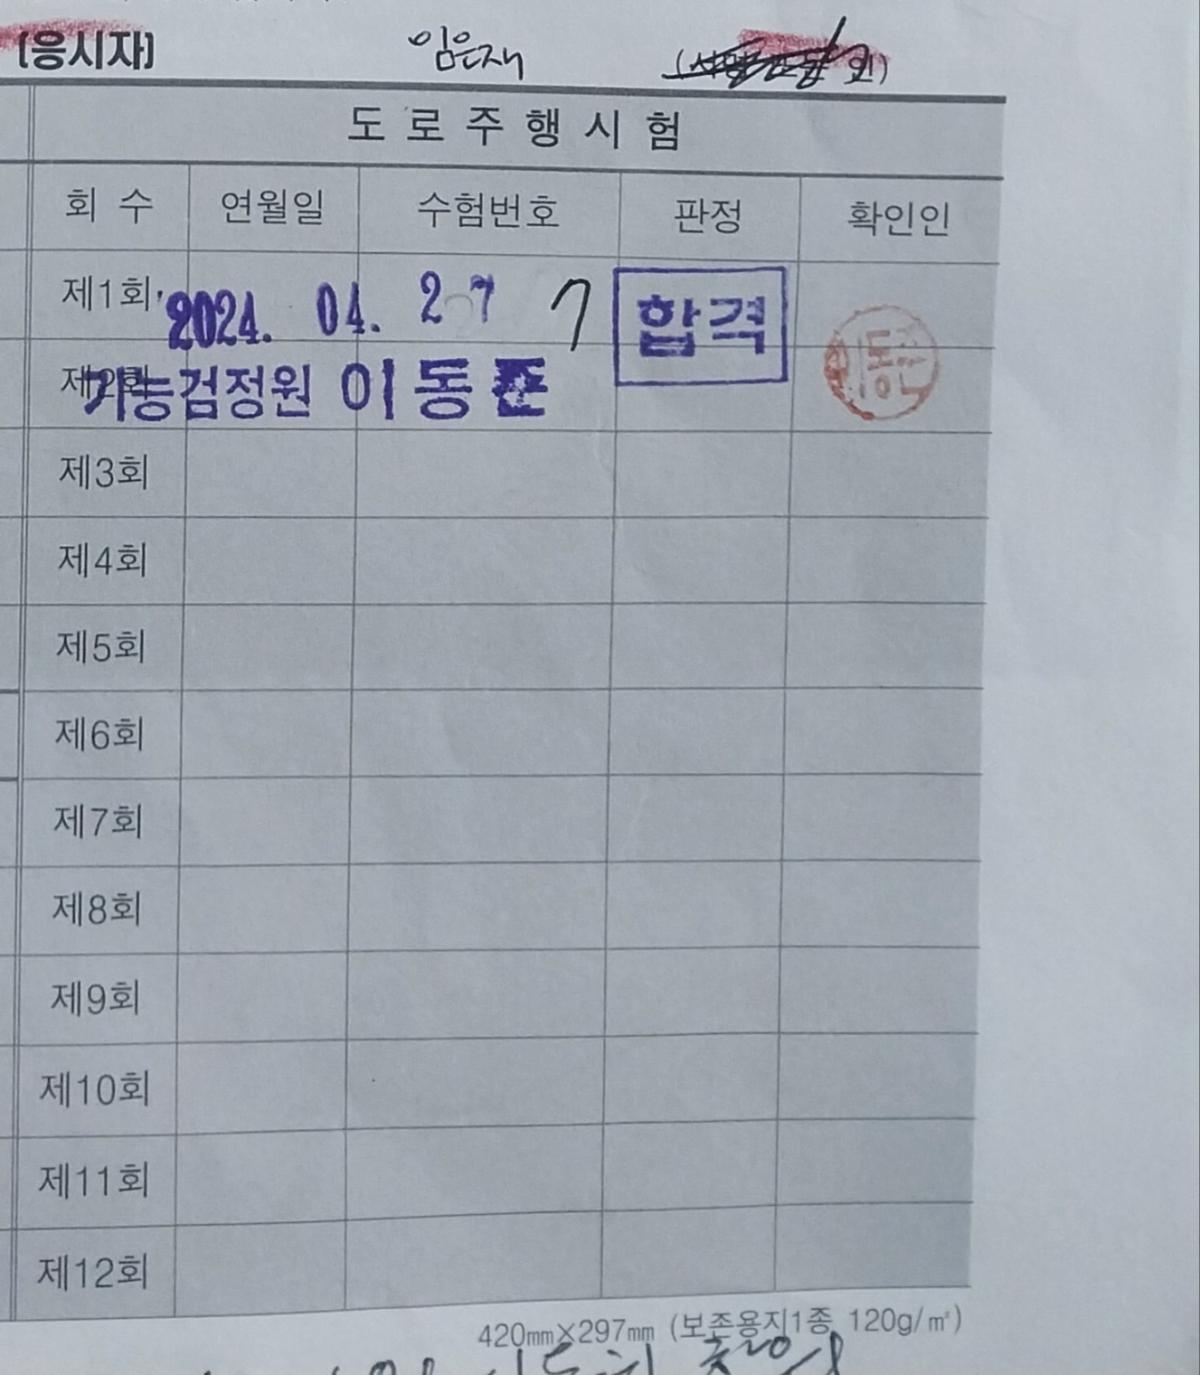 (응시자) 임은재
도로주행시험
회 수 연월일 수험번호 판정 확인인
제1회 2024. 04. 27 7 합격
제2회 기능검정원 이동준
제3회
제4회
제5회
제6회
제7회
제8회
제9회
제10회
제11회
제12회
420mm×297mm (보존용지1종 120g/㎡)